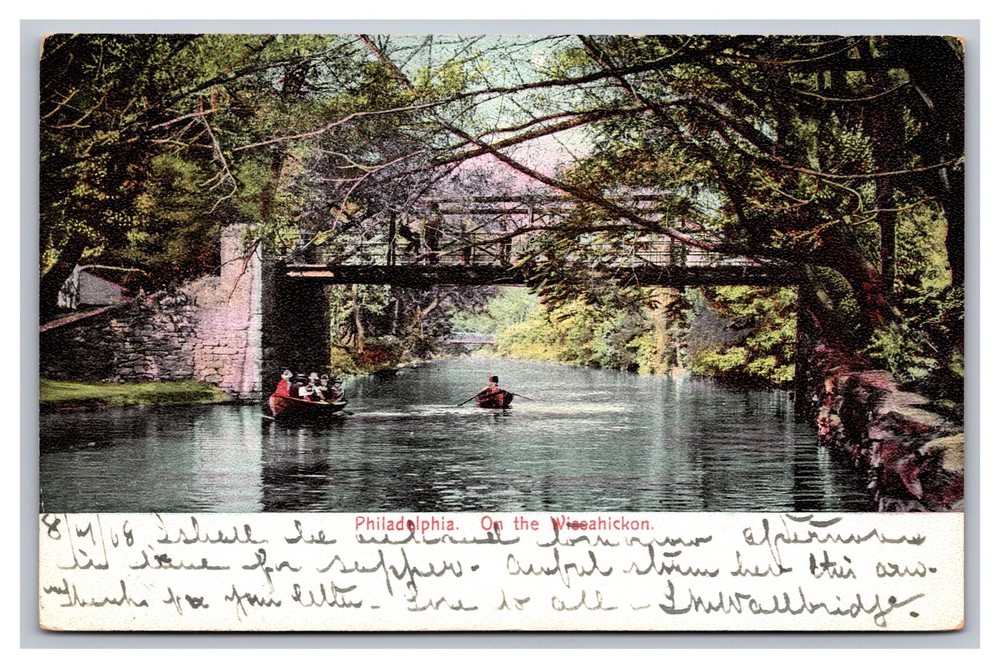 Philadelphia. On the Wissahickon.
8/7/08 I shall be out tomorrow afternoon
in time for supper. Awful storm here this
Thanks for your letter. Love to all - Wallbridge.